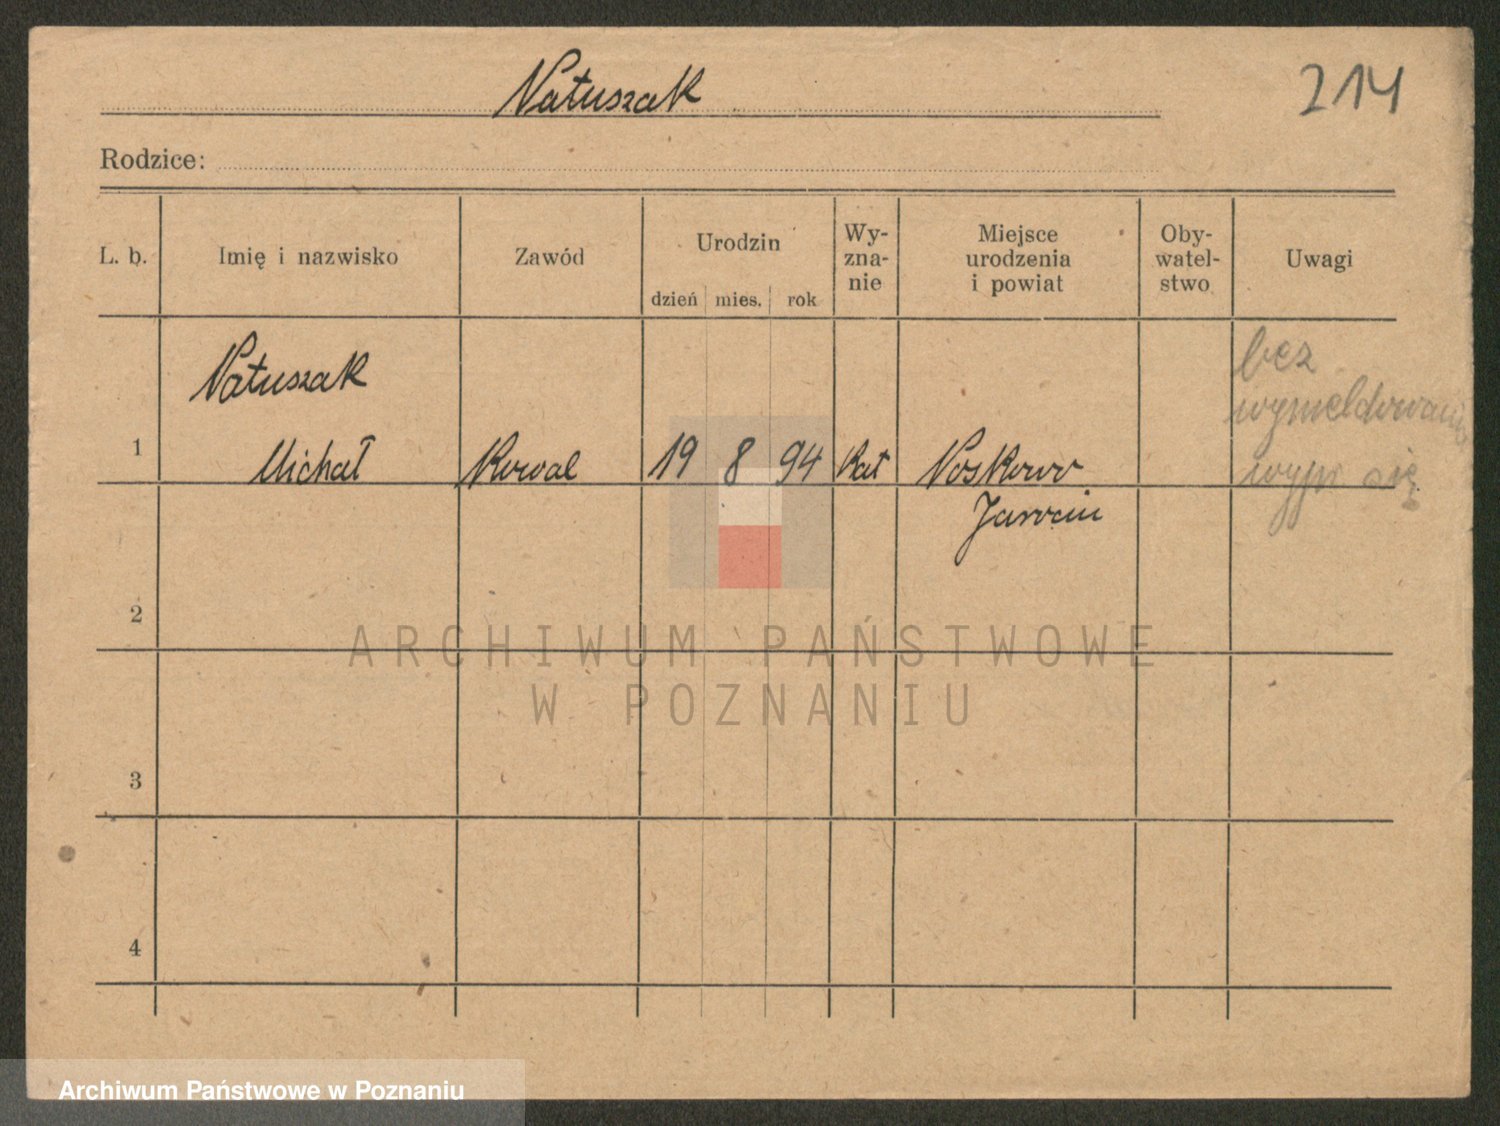 Natuszak
214
Rodzice:
L. b.
Imię i nazwisko
Zawód
Urodzin
dzień
mies.
rok
Wy-
zna-
nie
Miejsce
urodzenia
i powiat
Oby-
watel-
stwo
Uwagi
Natuszak
bez
wymeldowania
1
Michał
Kowal
19
8
94
Kat
Noskowo
wypr się
Jarocin
2
ARCHIWUM PAŃSTWOWE
W POZNANIU
3
4
Archiwum Państwowe w Poznaniu